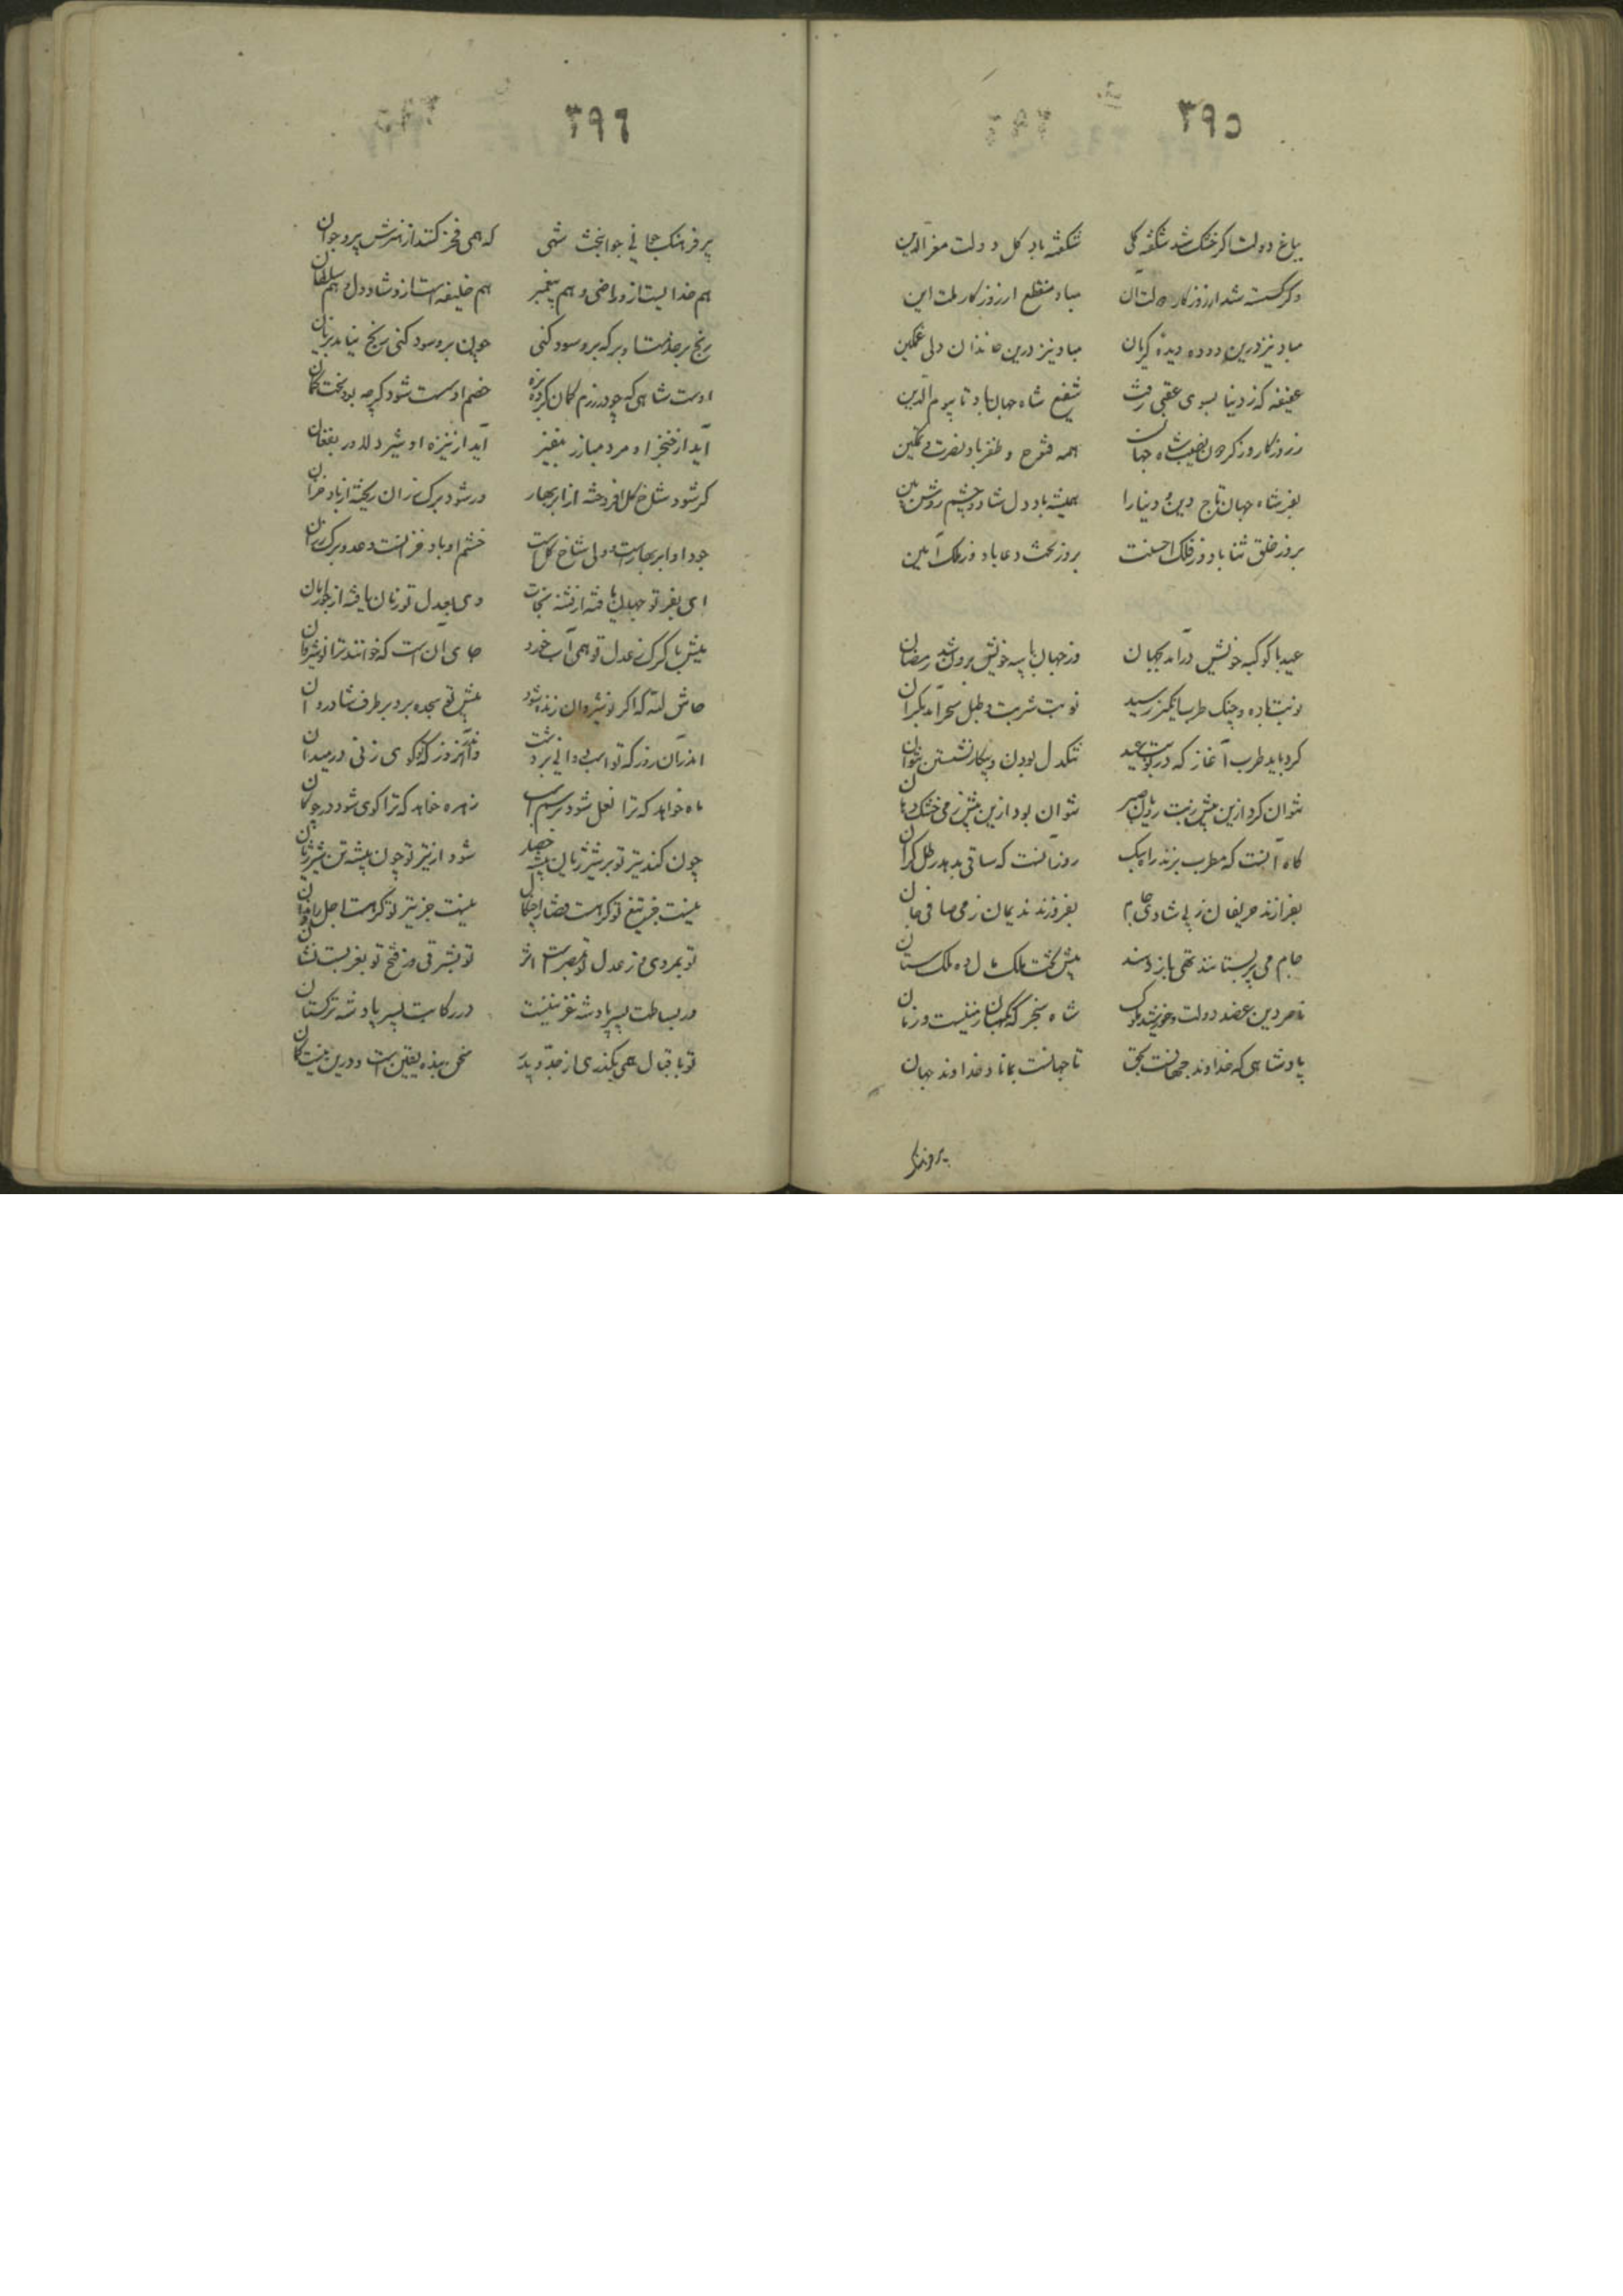 ۳۹۵
بباغ دولت اگر خشک شد شکفته گلی شکفته باد گل دولت معز الدین
وگر گسسته شد از روزگار دولت آن مباد منقطع از روزگار دولت این
مباد نیز درین دوده دیدهٔ گریان مباد نیز درین خاندان دلی غمگین
عفیفه که ز دنیا بسوی عقبی رفت شفیع شاه جهان باد تا بیوم الدین
ز روزگار و ز گردون نصیب شاه جهان همه فتوح و ظفر باد و نصرت و تمکین
بفر شاه جهان تاج دین و دنیا را همیشه باد دل شاد و چشم روشن بین
برو ز خلق ثنا باد و ز فلک احسنت برو ز بخت دعا باد و ز ملک آمین
عید با کوکبه خویش درآمد بجهان وز جهان با سپه خویش برون شد رمضان
نوبت باده و چنگ طرب انگیز رسید نوبت شربت و طبل سحر آمد بکران
کرد باید طرب آغاز که در نوبت عید تنگدل بودن و بیکار نشستن نتوان
نتوان کرد ازین پیش ز بت رویان صبر نتوان بود ازین پیش ز می خشک دهان
گاه آنست که مطرب بزند راه سبک روز آنست که ساقی بدهد رطل گران
بفرازند حریفان ز پی شادی جام بفروزند ندیمان ز می صافی جان
جام می پر بستانند تهی باز دهند پیش تخت ملک مال ده ملک ستان
ناصر دین عضد دولت و خورشید ملوک شاه سنجر که نگهبان زمینست و زمان
پادشاهی که خداوند جهانست بحق تا جهانست بماناد خداوند جهان
۳۹۶
پر فرهنگ جهانی جوانبخت شهی که همی فخر کنند از هنرش پیر و جوان
هم خدایست ازو راضی و هم پیغمبر هم خلیفه است ازو شاد دل و هم سلطان
اوست شاهی که چو در رزم کمان کرد بزه خصم او سست شود گرچه بود سخت کمان
آید از خنجر او مرد مبارز بنفیر آید از نیزه او شیر دلاور بفغان
گر شود شاخ گل افروخته از ابر بهار ور شود برگ رزان ریخته از باد خزان
جود او ابر بهارست و ولی شاخ گل است خشم او باد خزانست و عدو برگ رزان
ای بفر تو جهان یافته از فتنه نجات وی بعدل تو زمان یافته از جور امان
میش با گرگ ز عدل تو همی آب خورد جای آن است که خوانند ترا نوشروان
حاش لله که اگر نوشروان زنده شود پیش تو سجده برد بر طرف شادروان
اندر آن روز که تو اسب دوانی بر دشت واندر آن روز که تو گوی زنی در میدان
ماه خواهد که ترا نعل شود بر سم اسب زهره خواهد که ترا گوی شود در چوگان
شود از تیر تو چون بیشه تن شیر ژیان
نیست جز تیغ تو گر هست قضا را چنگال نیست جز تیر تو گر هست اجل را دندان
تو بمروی و ز عدل تو بمصرست اثر تو بشرقی و ز فتح تو بغربست نشان
در بساطت پسر پادشه غزنینست در رکابت پسر پادشه ترکستان
تو باقبال همی بگذری از جد و پدر سخن بنده یقین است و درین نیست گمان